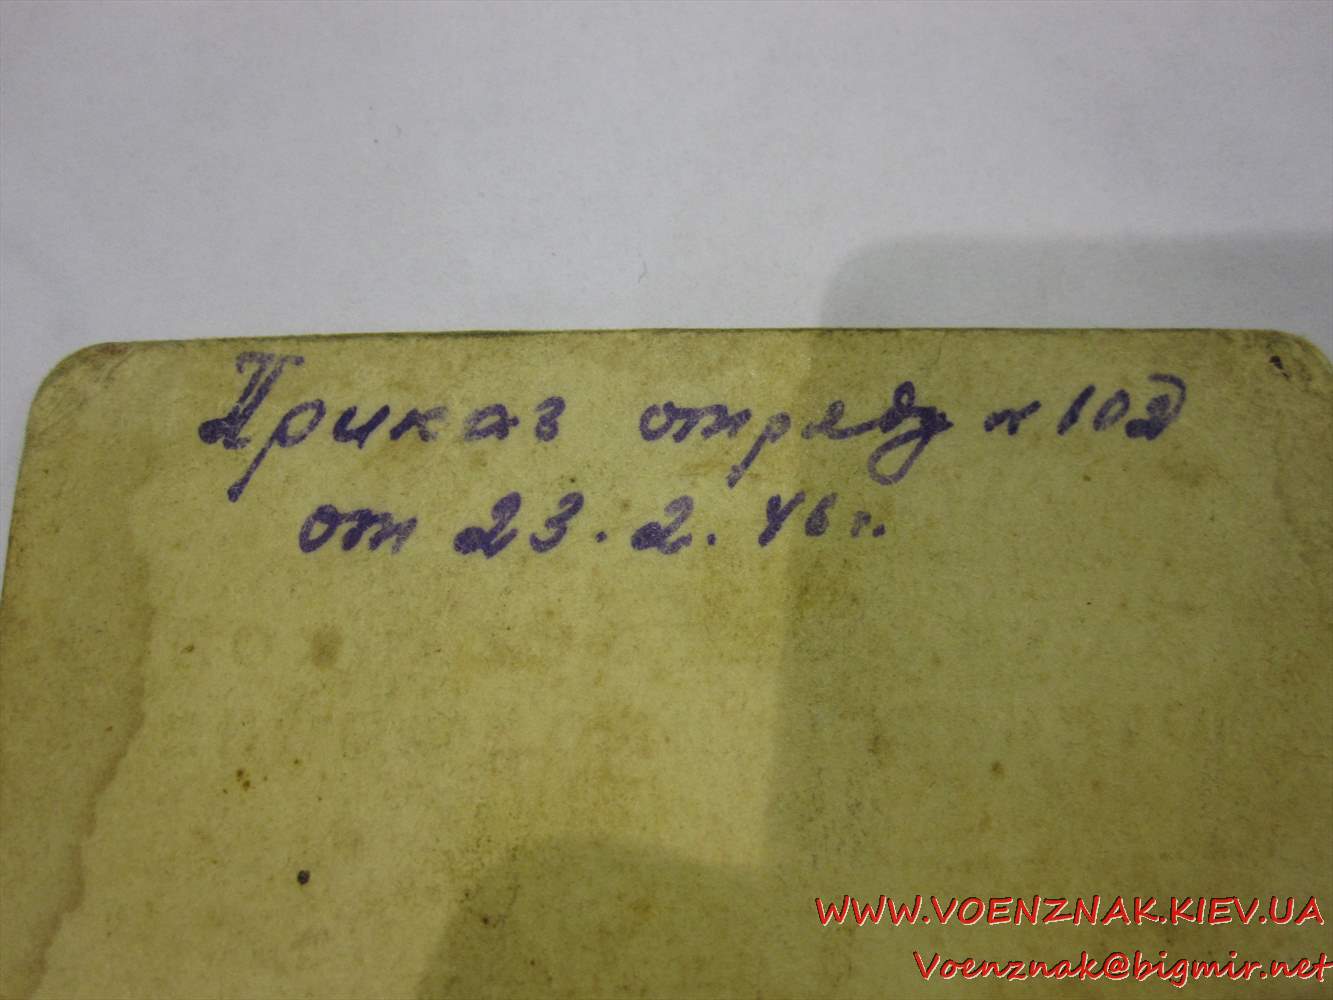 Приказ отряду № 102
от 23.2.46 г.
WWW.VOENZNAK.KIEV.UA
Voenznak@bigmir.net